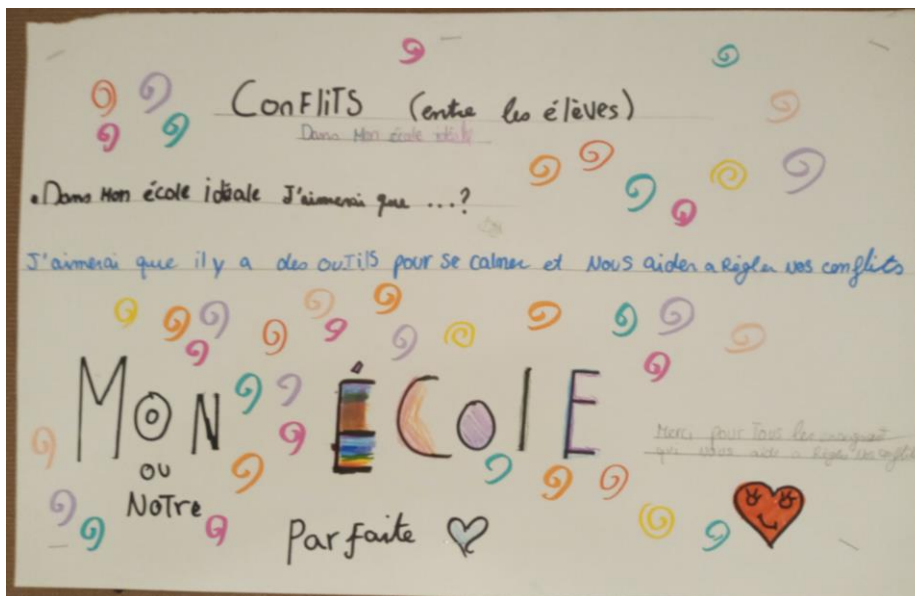 ConFliTS (entre les élèves)
Dans Mon école idéale
• Dans Mon école idéale J'aimerai que ...?
J'aimerai que il y a des ouTils pour se calmer et Nous aider a Règler nos conflits
MON ÉColE
ou
NoTre
Parfaite
Merci pour Tous les
qui Nous aide a Règler Nos conflits